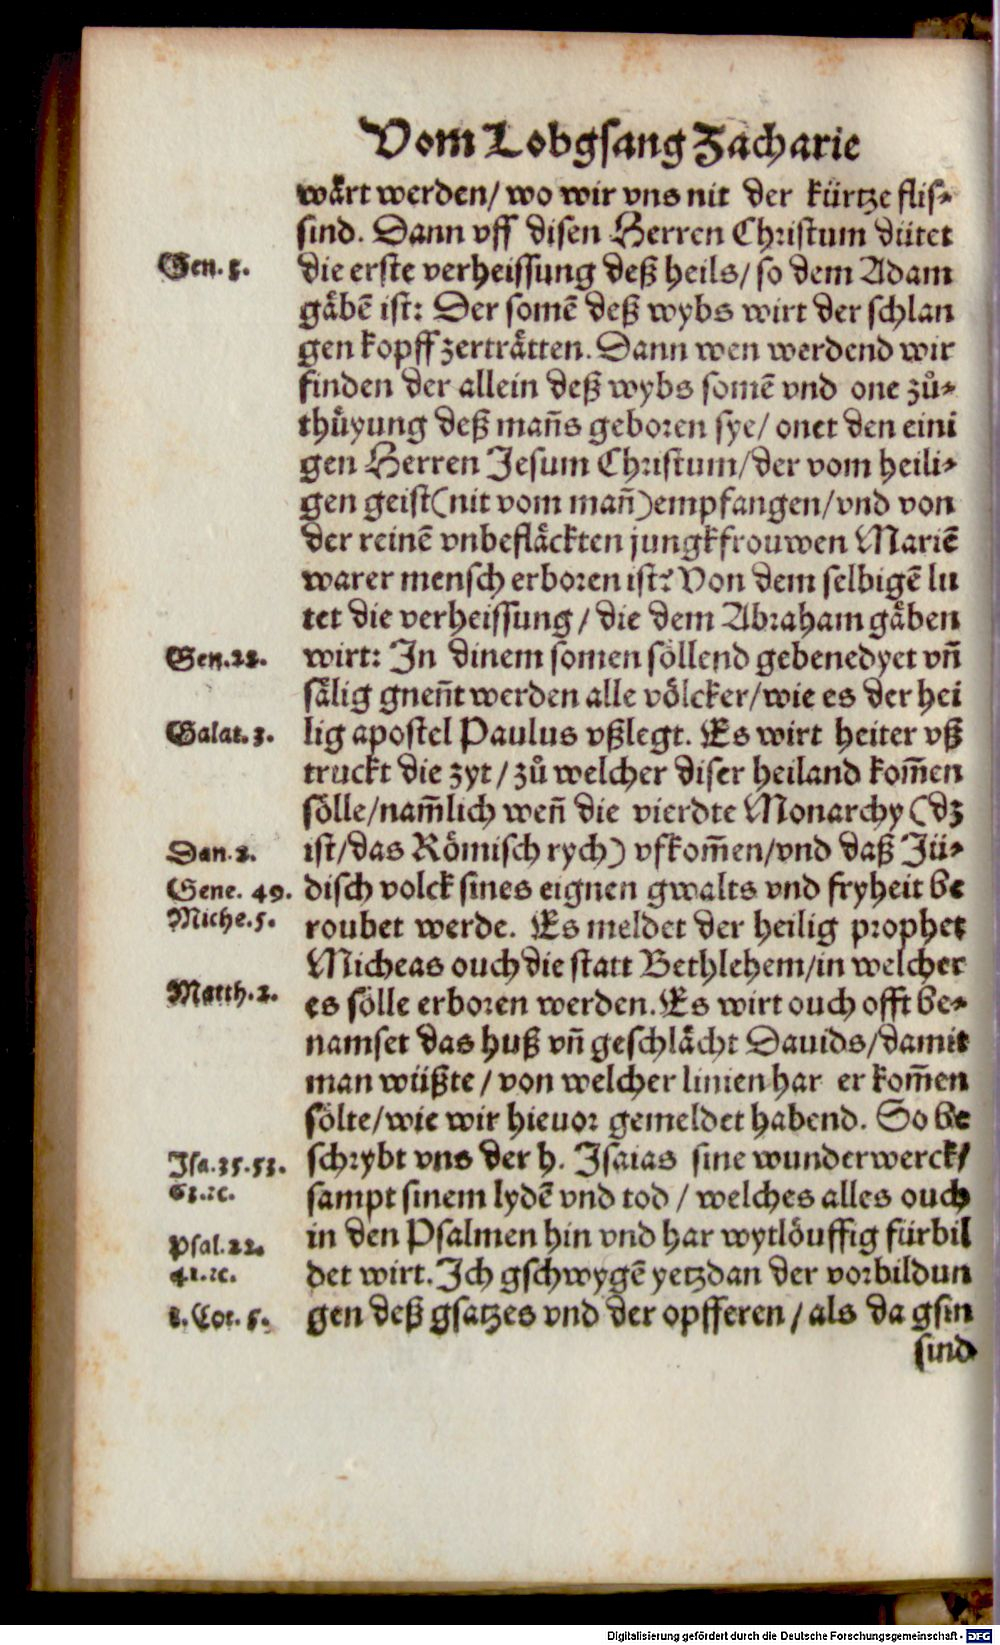 Vom Lobgsang Zacharie
wårt werden/ wo wir vns nit der kürtze flis⸗
sind. Dann vff disen Herren Christum dütet
Gen. 3.
die erste verheissung deß heils/ so dem Adam
gåbē ist: Der somē deß wybs wirt der schlan
gen kopff zerträtten. Dann wen werdend wir
finden der allein deß wybs somē vnd one zů⸗
thüyung deß mañs geboren sye/ onet den eini
gen Herren Jesum Christum/ der vom heili⸗
gen geist (nit vom mañ) empfangen/ vnd von
der reinē vnbefläckten jungkfrouwen Mariē
warer mensch erboren ist? Von dem selbigē lu
tet die verheissung/ die dem Abraham gåben
Gen. 22.
wirt: In dinem somen söllend gebenedyet vñ
sälig gneñt werden alle völcker/ wie es der hei
Galat. 3.
lig apostel Paulus vßlegt. Es wirt heiter vß
truckt die zyt/ zů welcher diser heiland kom̄en
sölle/ nam̄lich weñ die vierdte Monarchy (dz
Dan. 2.
ist/ das Römisch rych) vfkom̄en/ vnd daß Jü⸗
Gene. 49.
disch volck sines eignen gwalts vnd fryheit be
Miche. 5.
roubet werde. Es meldet der heilig prophet
Micheas ouch die statt Bethlehem/ in welcher
Matth. 2.
es sölle erboren werden. Es wirt ouch offt be⸗
namset das huß vñ geschlächt Dauids/ damit
man wüßte/ von welcher linien har er kom̄en
sölte/ wie wir hieuor gemeldet habend. So be
Isa. 35. 53.
schrybt vns der h. Isaias sine wunderwerck/
61. ꝛc.
sampt sinem lydē vnd tod/ welches alles ouch
Psal. 22.
in den Psalmen hin vnd har wytlöuffig fürbil
41. ꝛc.
det wirt. Ich gschwygē yetzdan der vorbildun
1. Cor. 5.
gen deß gsatzes vnd der opfferen/ als da gsin
sind
Digitalisierung gefördert durch die Deutsche Forschungsgemeinschaft - DFG